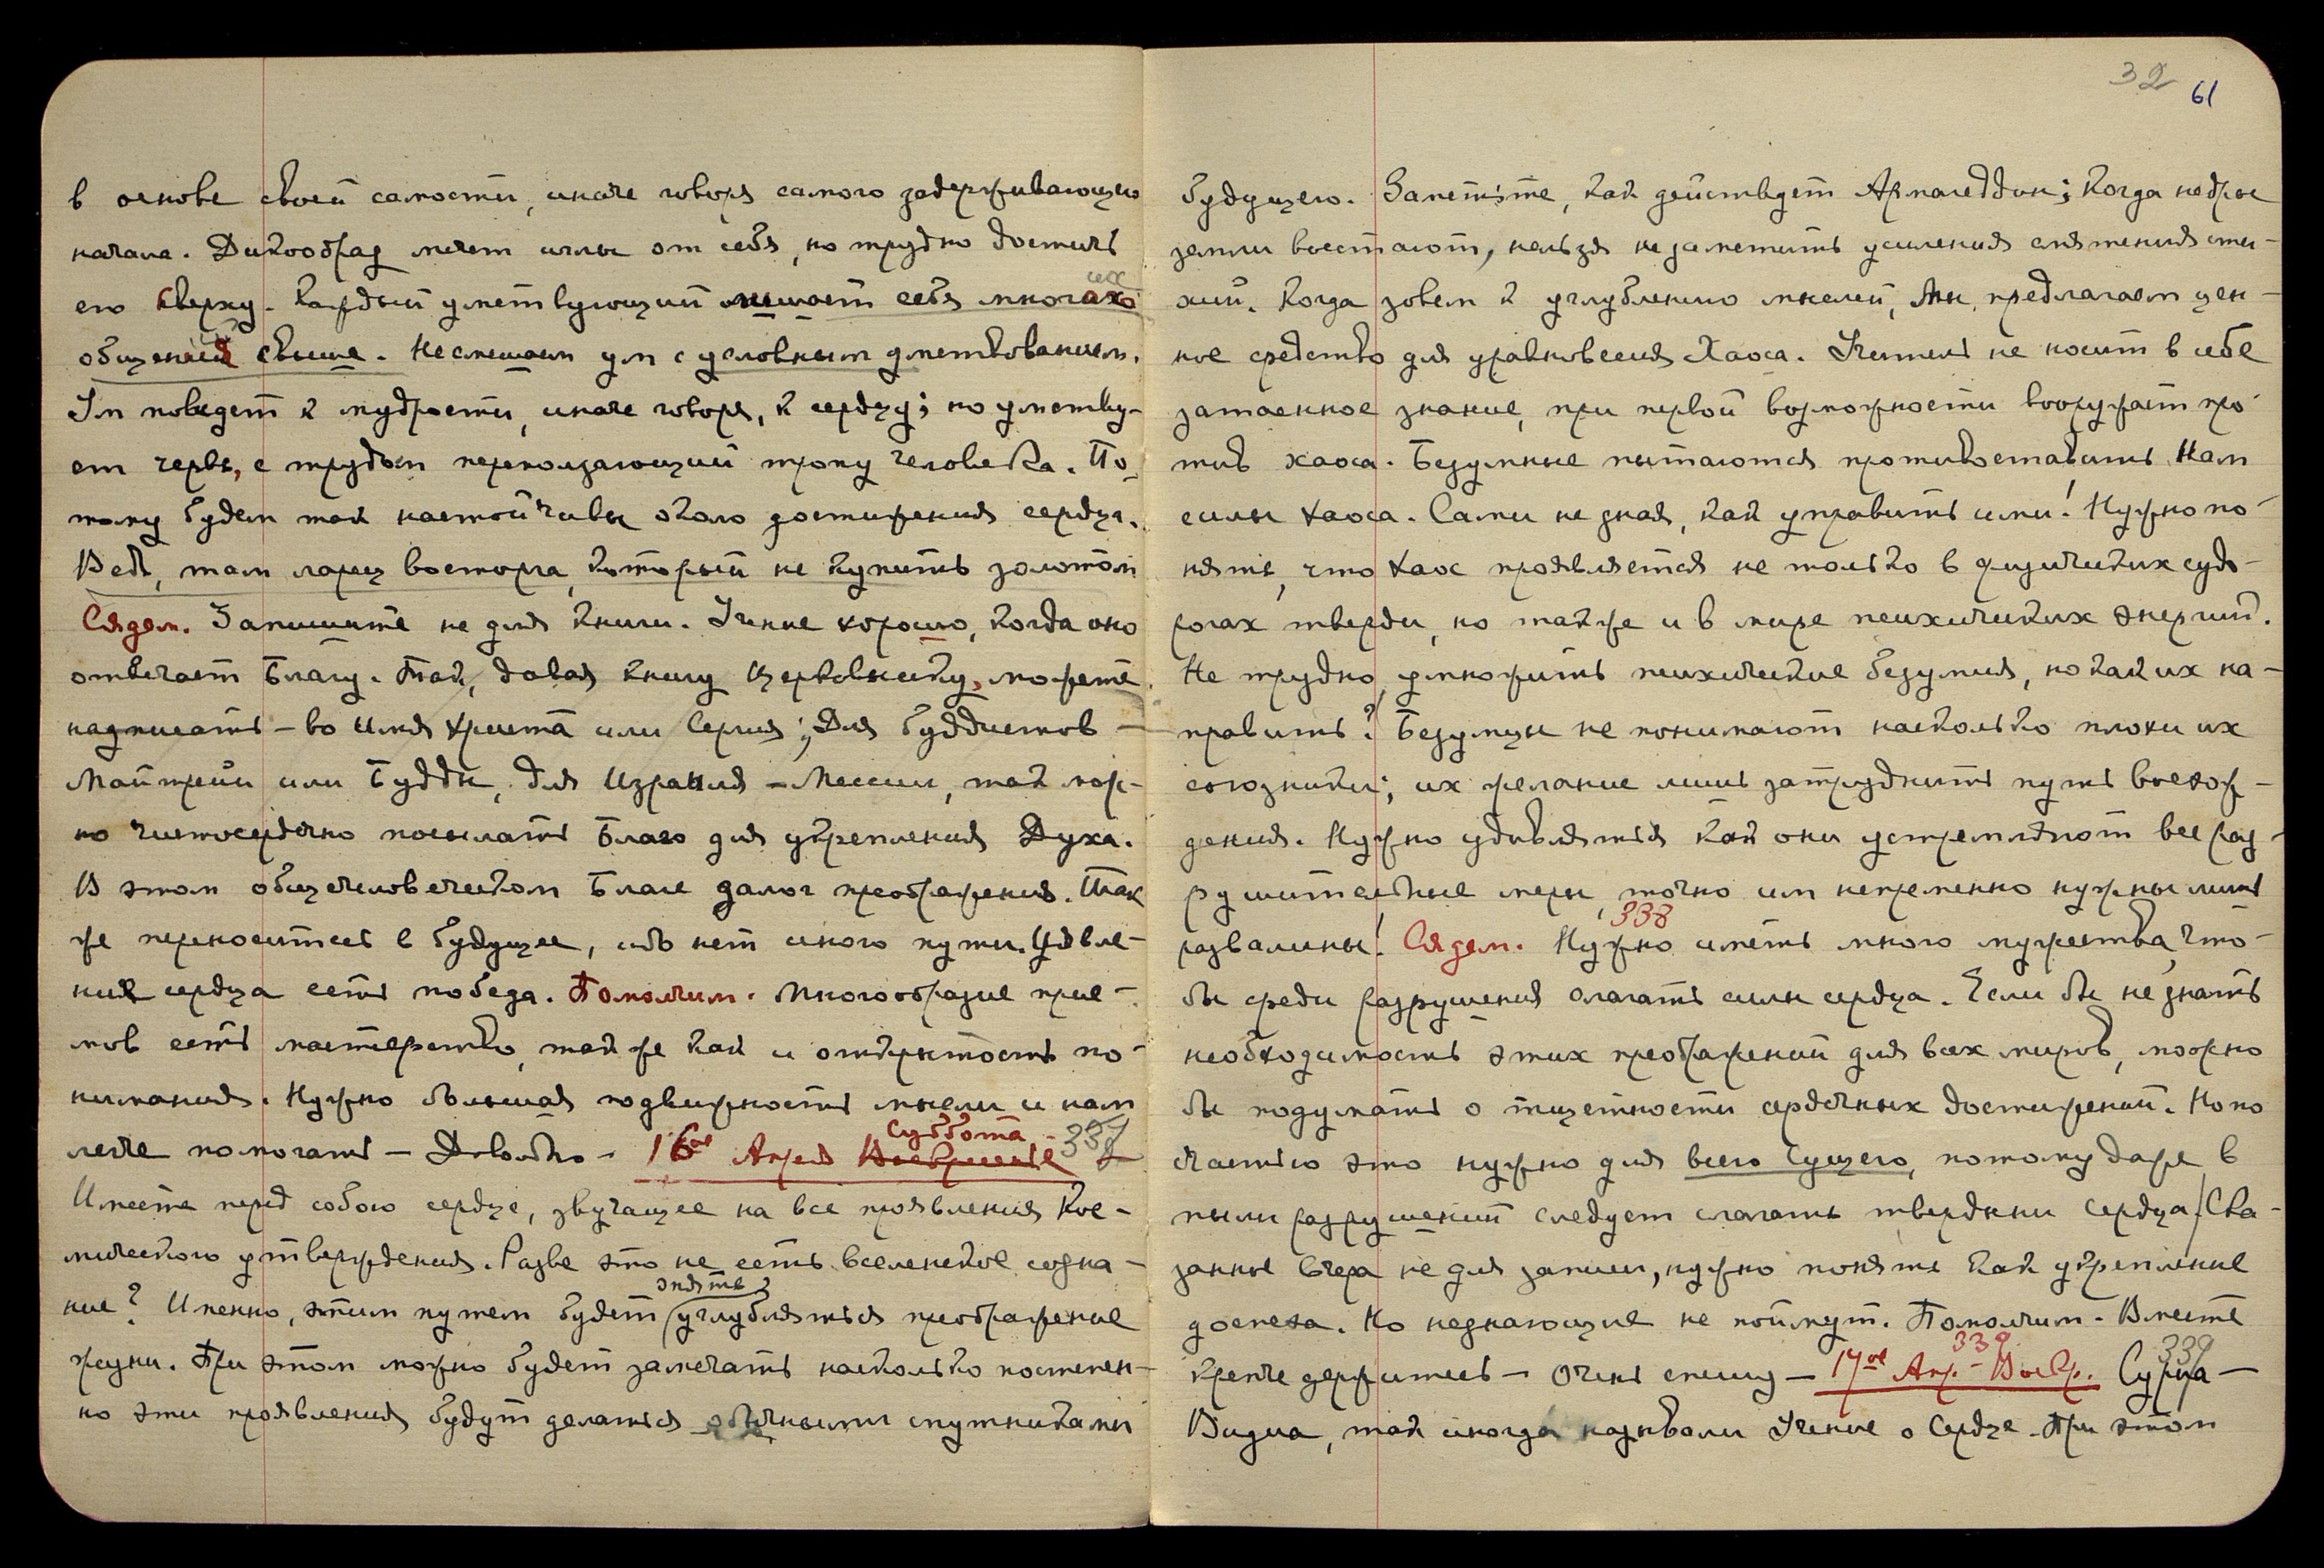 в основе своей самости, иначе говоря самого задерживающего
начала. Дикообраз мечет иглы от себя, но трудно достичь
его кверху. Каждый умствующий лишает себя многих
общений свыше. Не смешаем ум с условным умствованием.
Ум поведет к мудрости, иначе говоря, к сердцу; но умству-
ет червь, с трудом переползающий тропу человека. По-
тому будем так настойчивы около достижения сердца.
Ведь, там ларец восторга, который не купить золотом
Сядем. Запишите не для книги. Учение хорошо, когда оно
отвечает Благу. Так, давая книгу Церковнику, можете
надписать – во Имя Христа или Сергия; Для буддистов –
Майтрейи или Будды, для Израиля – Мессии, так мож-
но чистосердечно посылать Благо для укрепления Духа.
В этом общечеловеческом Благе залог преображения. Так
же переноситесь в будущее, ибо нет иного пути. Явле-
ния сердца есть победа. Помолчим. Многообразие прие-
мов есть мастерство, так же как и открытость по-
нимания. Нужно большая подвижность мысли и нам
легче помогать – Довольно – 16ое Апреля Воскресенье Суббота 337
Имеете перед собою сердце, звучащее на все проявления Кос-
мического утверждения. Разве это не есть вселенское созна-
ние? Именно, этим путем будет углубляться преображение
жизни. При этом можно будет замечать насколько постепен-
но эти проявления будут делаться обычными спутниками
32 61
будущего. Заметьте, как действует Армагеддон; когда недры
земли восстают, нельзя не заметить усиления смятения сти-
хий. Когда зовем к углублению мыслей, Мы предлагаем цен-
ное средство для уравновесия Хаоса. Учитель не носит в себе
затаенное знание, при первой возможности вооружает про-
тив хаоса. Безумные пытаются противоставить Нам
силы хаоса. Сами не зная, как управить ими! Нужно по-
нять, что хаос проявляется не только в физических судо-
рогах тверди, но также и в мире психических энергий.
Не трудно умножить психические безумия, но как их на-
править? Безумцы не понимают насколько плохи их
союзники; их желание лишь затруднить путь восхож-
дения. Нужно удивляться как они устремляют все раз-
рушительные меры, точно им непременно нужны лишь
развалины! Сядем. 338 Нужно иметь много мужества, что-
бы среди разрушения слагать силы сердца. Если бы не знать
необходимость этих преображений для всех миров, можно
бы подумать о тщетности сердечных достижений. Но по
счастью это нужно для всего Сущего, потому даже в
пыли разрушений следует слагать твердыни Сердца/Ска-
занное вчера не для записи, нужно понять как укрепление
доспеха. Но незнающие не поймут. Помолчим. Вместе
крепче держитесь – Очень спешу – 17ое Апр. – Воскр. 339 Сурия – 339
Видиа, так иногда называли Учение о Сердце. При этом